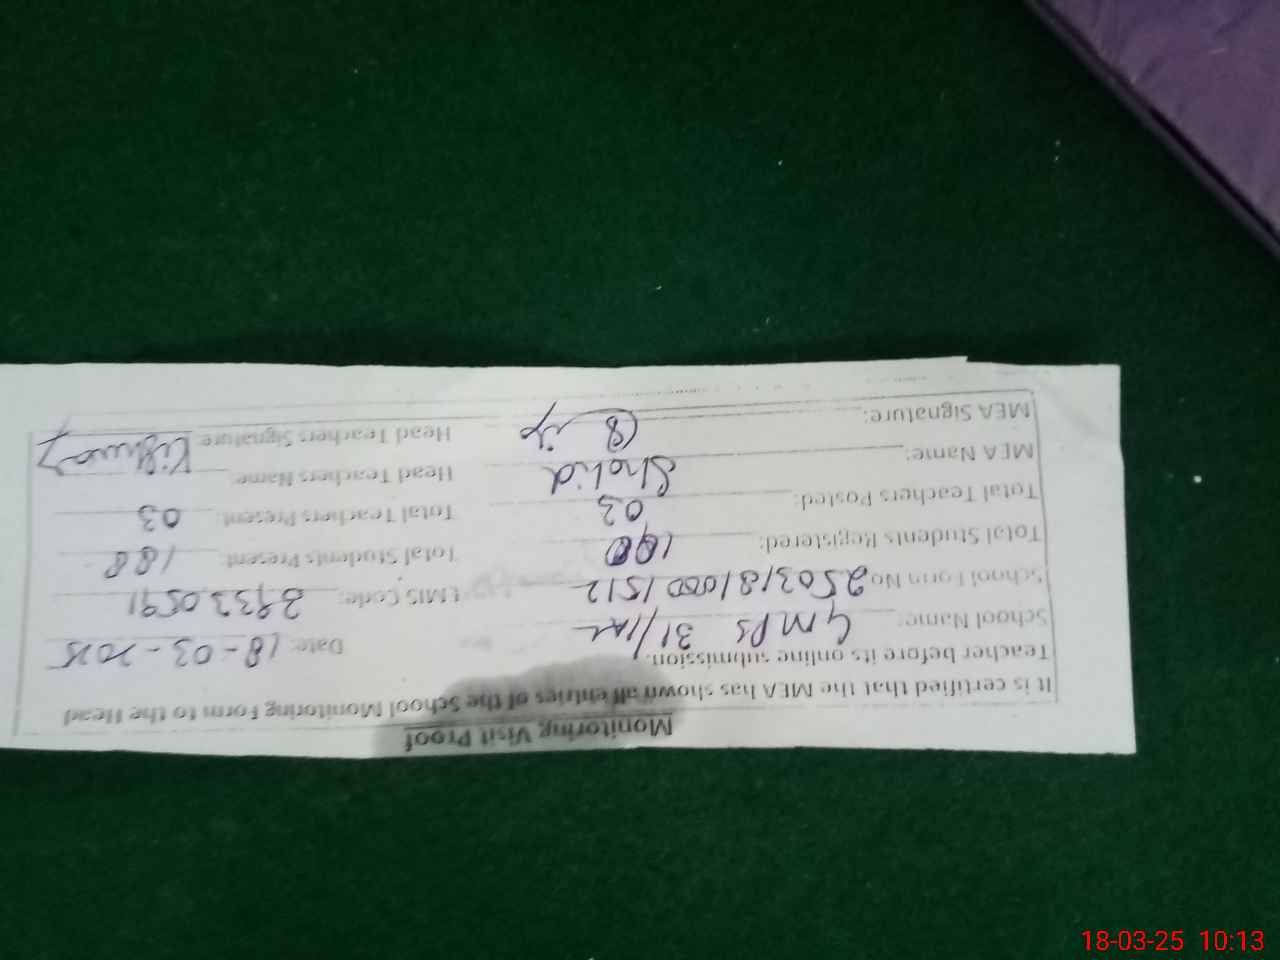 Monitoring Visit Proof
It is certified that the MEA has shown all entries of the School Monitoring Form to the Head
Teacher before its online submission. Date: 18-03-2025
School Name: GMPS 31/
School Form No EMIS Code: 39330591
Total Students Registered: Total Students Present: 188
Total Teachers Posted: 03 Total Teachers Present: 03
MEA Name: Shahid Head Teachers Name:
MEA Signature: Head Teachers Signature
18-03-25 10:13